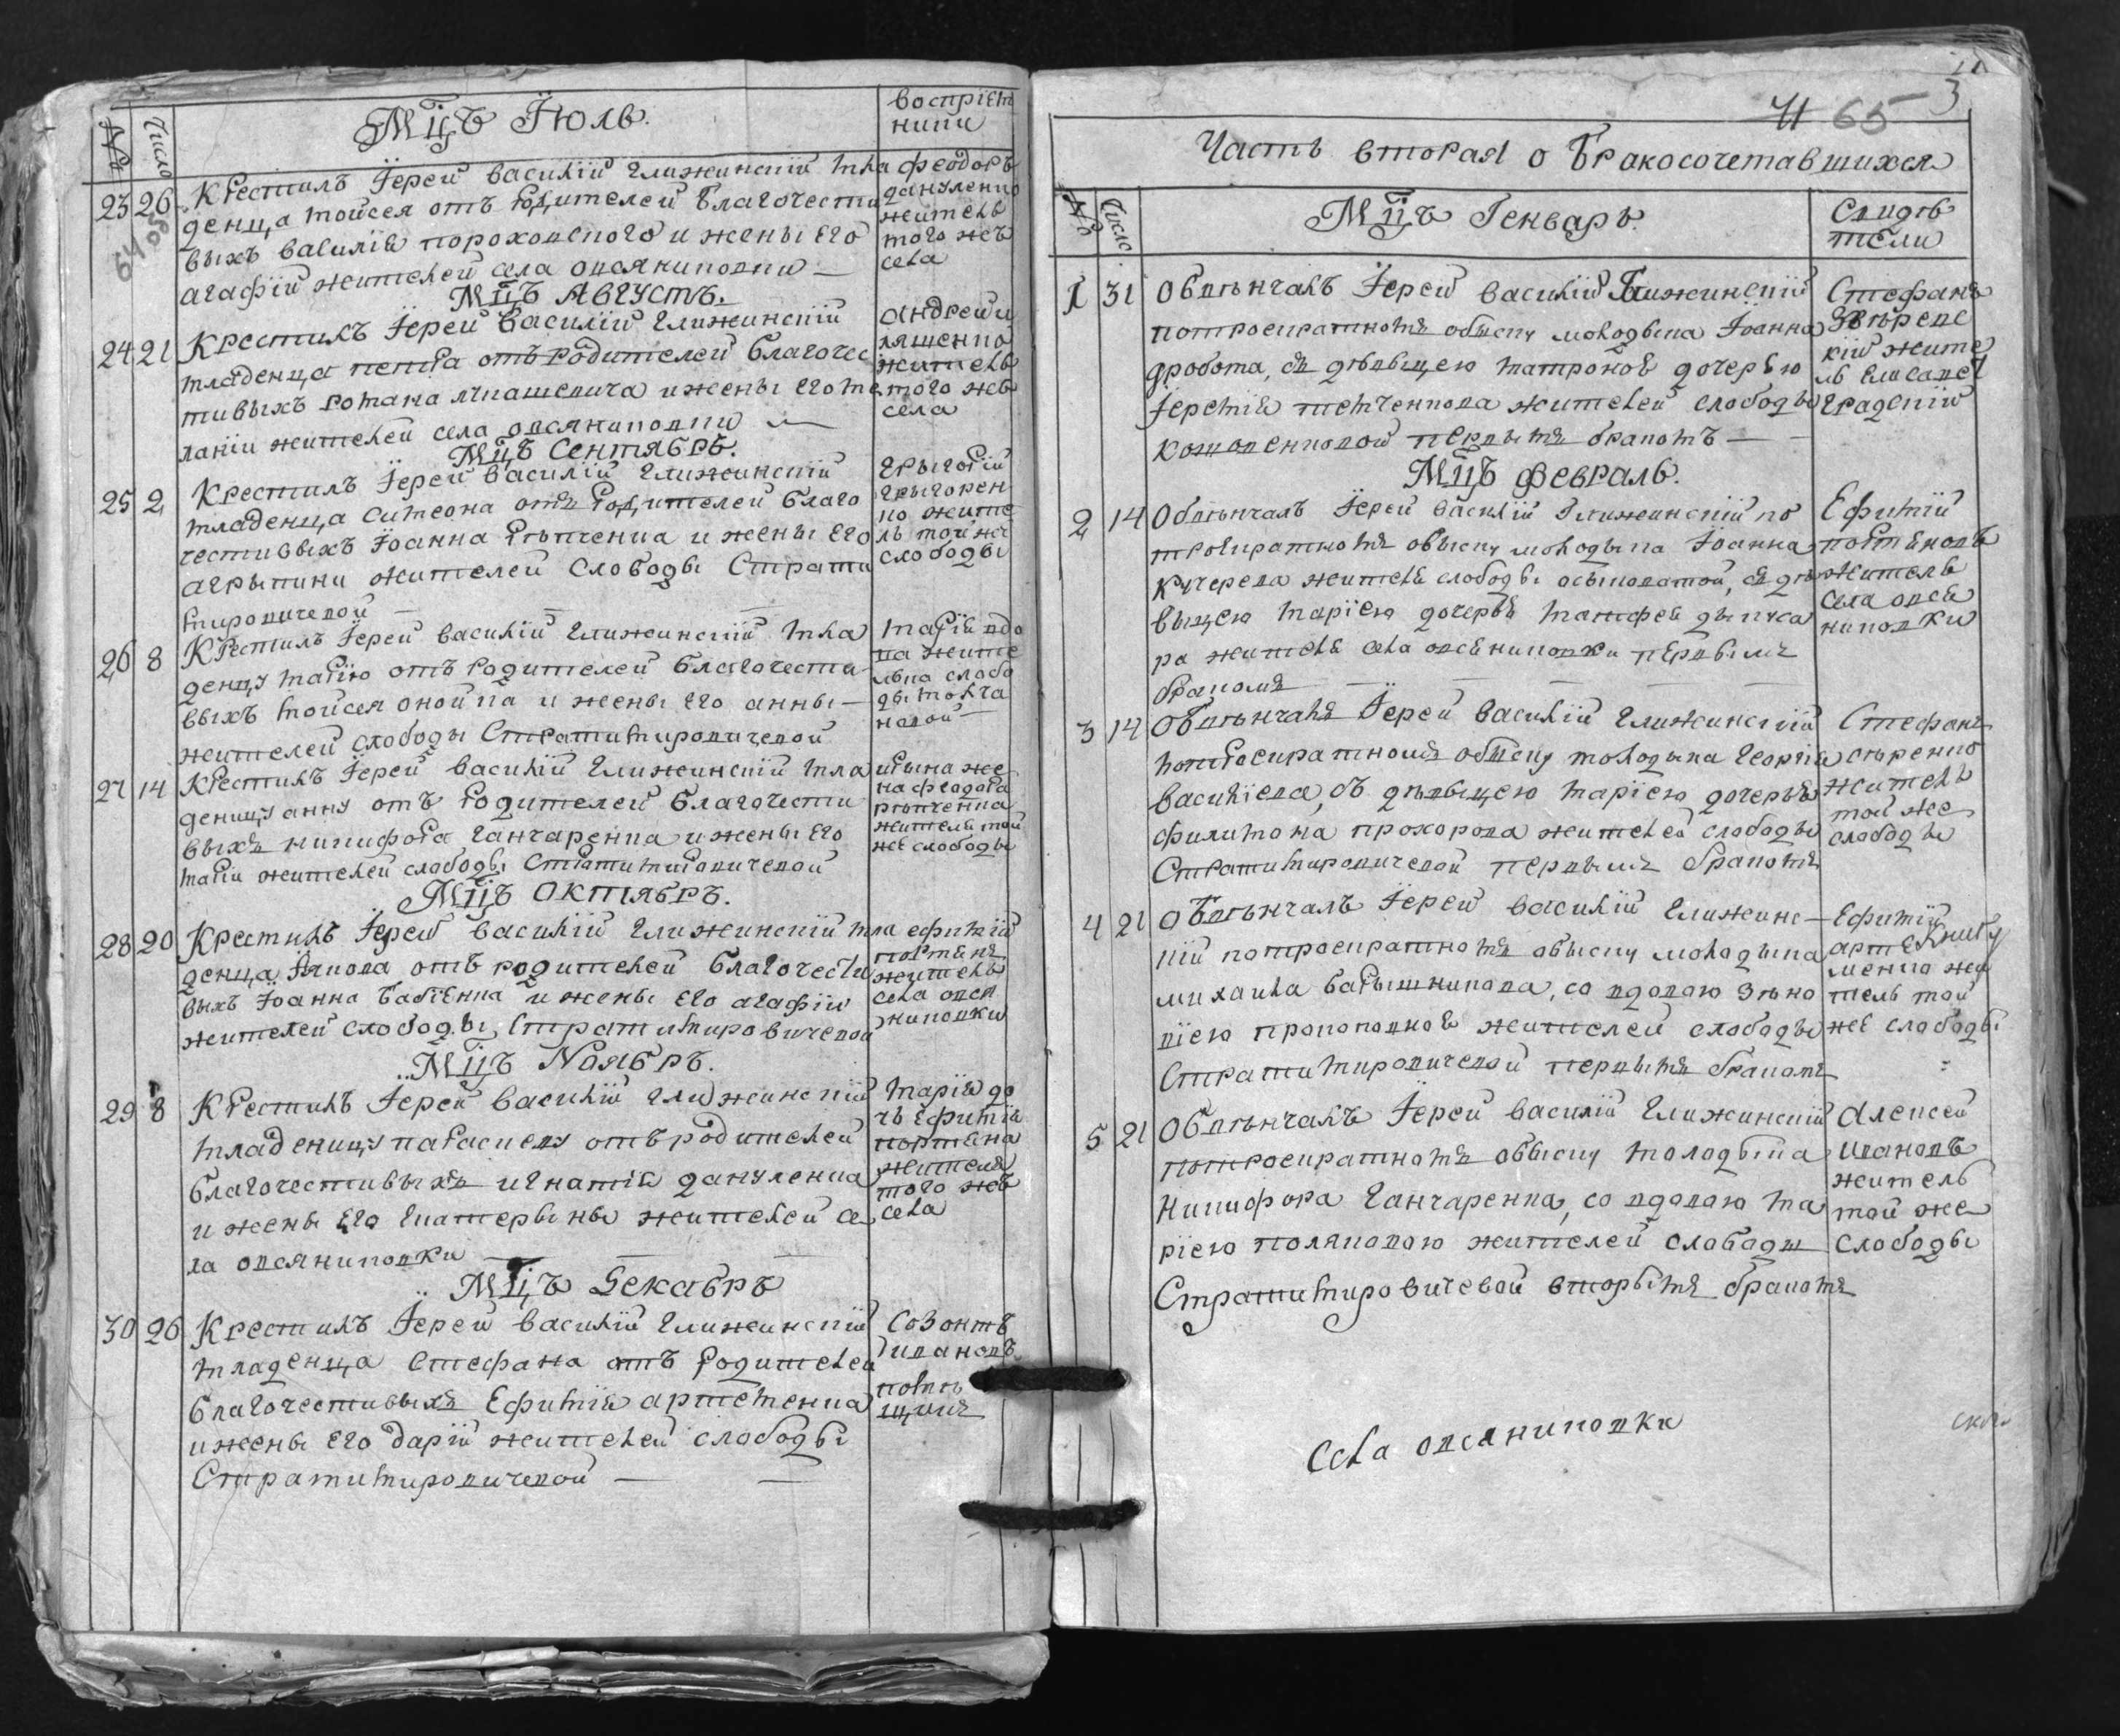 Мцъ Июль.
воспрїем
ники
№
Число
23 26 Крестилъ Їерей василїй Глижинскїй мла
денца моисея отъ Родителей благочести
выхъ василїя пороховского и жены его
агафїи жителей села овсяниковки —
феодоръ
данүленко
житель
того жъ
села
Мцъ Августъ.
24 21 Крестилъ Їерей василїй Глижинскїй
младенца отъ Родителей благочес
тивыхъ романа лүпашевича и жены его ме
ланїи жителей села овсяниковки —
андрей и
ляшенко
житель
того жъ
села
Мцъ Сентябрь.
25 2 Крестилъ Їерей василїй Глижинскїй
младенца симеона отъ Родителей благо
честивыхъ Їоанна и жены его
агрыпины жителей слободы Страти
мировичевой —
Грыгорїй
грыгорен
ко жите
ль той же
слободы
26 8 Крестилъ Їерей василїй Глижинскїй мла
денцү марїю отъ родителей благочести
выхъ моисея и жены его анны —
жителей слободы Стратимировичевой
марїя вдо
ва жите
лька слобо
ды
27 14 Крестилъ Їерей василїй Глижинскїй мла
деницү аннү отъ родителей благочести
выхъ никифора ганчаренка и жены его
марїи жителей слободы Стратимировичевой
ирына же
на феодора
жители той
же слободы
Мцъ октябрь.
28 20 Крестилъ Їерей василїй Глижинскїй мла
денца Їякова отъ родителей благочести
выхъ Їоанна бабїенка и жены его агафїи
жителей слободы Стратимировичевой
ефимїй
житель
села овся
никовки
Мцъ Ноябрь.
29 8 Крестилъ Їерей василїй Глижинскїй
младеницү параскевү отъ родителей
благочестивыхъ игнатїя данүленка
и жены его екатерыны жителей се
ла овсяниковки —
марїя до
чь ефимїя
жителя
того жъ
села
Мцъ Декабрь
30 26 Крестилъ Їерей василїй Глижинскїй
младенца стефана отъ родителей
благочестивыхъ Ефимїя артеменка
и жены его дарїи жителей слободы
Стратимировичевой —
Созонтъ
ивановъ
помѣ
щикъ
65
3
Часть вторая о бракосочетавшихся
№
Число
Мцъ Генварь.
свидѣ
тели
1 31 Обвѣнчалъ Їерей василїй Глижинскїй
потроекратномъ обыскү молодыка Їоанна
дробота, съ дѣвыцею матроною дочерью
Їеремїя жителей слободы
первымъ бракомъ —
Стефанъ
жите
ль елисавет
градскїй
Мцъ февраль.
2 14 Обвѣнчалъ Їерей василїй Глижинскїй по
троекратномъ обыскү молодыка Їоанна
кучерева жителя слободы осыковатой, съ дѣ
выцею марїею дочерью
ра жителя села овсяниковки первымъ
бракомъ —
Ефимїй
житель
села овся
никовки
3 14 Обвѣнчалъ Їерей василїй Глижинскїй
потроекратномъ обыскү молодыка георгїя
василїева, съ дѣвыцею марїею дочерью
филимона прохорова жителей слободы
Стратимировичевой первымъ бракомъ
Стефанъ
житель
той же
слободы
4 21 Обвѣнчалъ Їерей василїй Глижинс—
кїй потроекратномъ обыскү молодыка
михаила барышникова, со вдовою Зѣно
вїею прокоповною жителей слободы
Стратимировичевой первымъ бракомъ
Ефимїй
арте
менко жи
тель той
же слободы
5 21 Обвѣнчалъ Їерей василїй Глижинскїй
потроекратномъ обыскү молодыка
никифора ганчаренка, со вдовою ма
рїею поляковою жителей слободы
Стратимировичевой вторымъ бракомъ
Алексей
ивановъ
житель
той же
слободы
села овсяниковки